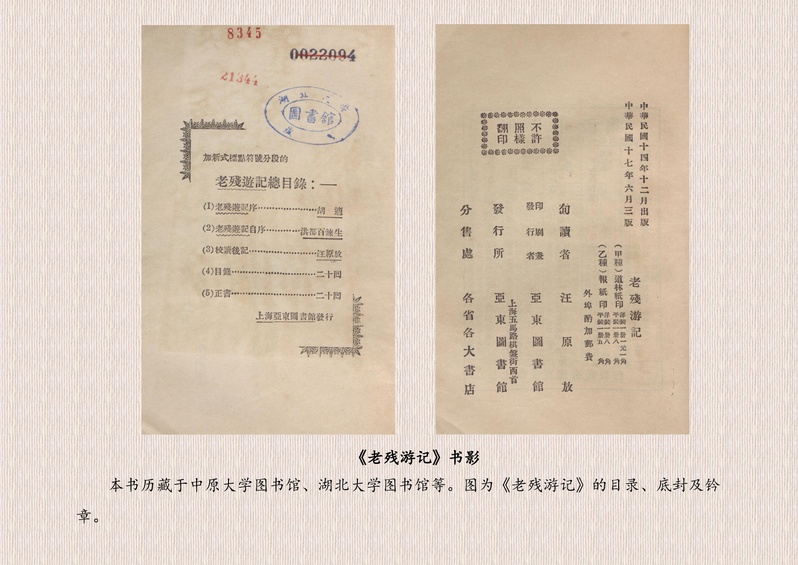 8345
0022094
21344
湖北大學
圖書館
加新式標點符號分段的
老殘遊記總目錄：—
(1)老殘遊記序………………胡適
(2)老殘遊記自序…………洪都百鍊生
(3)校讀後記………………汪原放
(4)目錄………………二十回
(5)正書………………二十回
上海亞東圖書館發行
中華民國十四年十二月出版
中華民國十七年六月三版
老殘游記
（甲種）道林紙印 洋裝一册一元一角 平裝一册八角
（乙種）報紙印 洋裝一册八角 平裝一册五角
外埠酌加郵費
句讀者 汪原放
印刷兼發行者 亞東圖書館
發行所 上海五馬路棋盤街西首 亞東圖書館
分售處 各省各大書店
不許
照樣
翻印
《老残游记》书影
本书历藏于中原大学图书馆、湖北大学图书馆等。图为《老残游记》的目录、底封及钤
章。